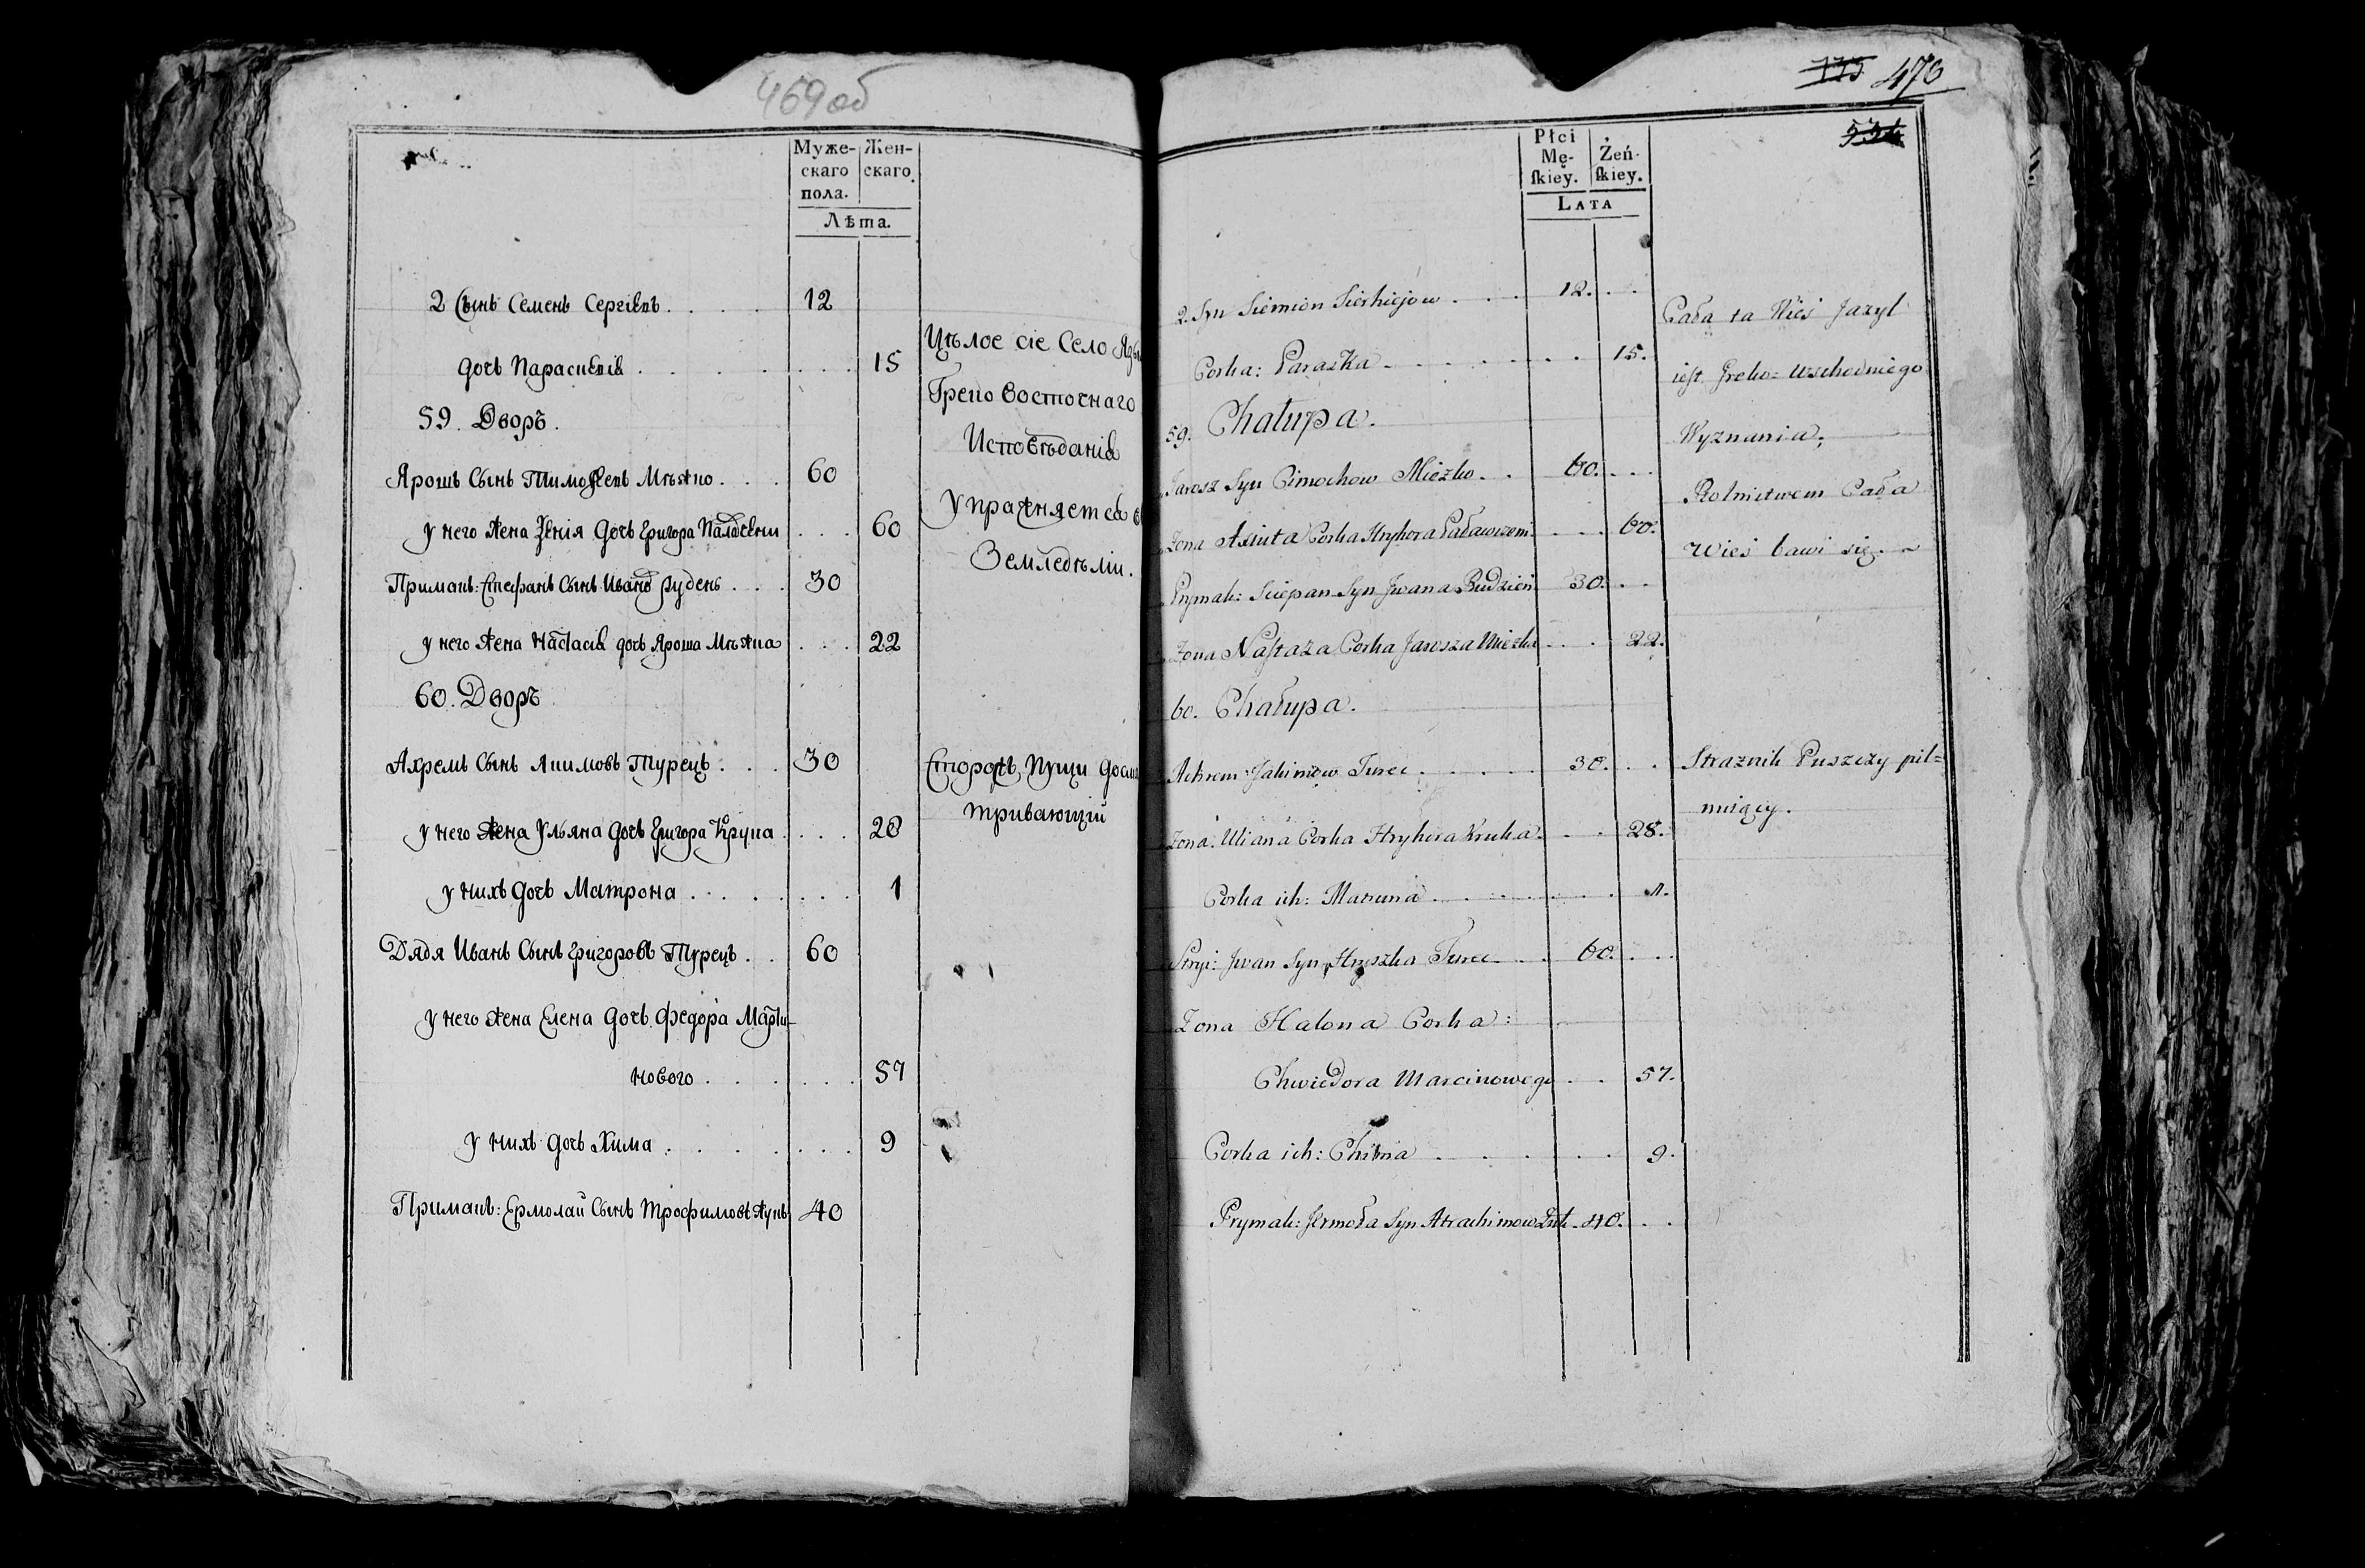 469 об
Муже-
скаго
пола.
Жен-
скаго.
Лѣта.
2 Сынъ Семенъ Сергіевъ. . . . 12
дочь Параскевія . . . . . . . 15
59. Дворъ.
Ярошъ Сынъ Тимофеевъ Мѣжко . . . 60
у него Жена Ксенія дочь Григора . . . 60
Примакъ: Стефанъ Сынъ Ивана Рудень . . . 30
у него Жена Настасія дочь Яроша Мѣжка . . . 22
60. Дворъ
Ахремъ Сынъ Якимовъ Турецъ . . . 30
у него Жена Ульяна дочь Григора Крука . . . 28
у нихъ дочь Матрона . . . . . . . 1
Дядя Иванъ Сынъ Григоровъ Турецъ . . 60
у него Жена Елена дочь Федора Марти-
нового . . . . . . 57
у нихъ дочь Хима . . . . . . . 9
Примакъ: Ермолай Сынъ Трофимовъ Жукъ 40
Цѣлое сіе Село
Греко Восточнаго
Исповѣданія
Упражняется
Земледѣліи.
Сторожъ Пущи
тривающій
115 470
Płci
Mę-
ſkiey.
Żeń-
ſkiey.
LATA
2. Syn Siemion Sierhiejow . . . 12. . .
Corka: Paraszka . . . . . . . 15.
59. Chałupa.
Jarosz Syn Cimochow Mieżko . . 60. . .
Żona Axiuta Corka Hryhora . . . 60.
Prymak: Sciepan Syn Jwana Rudzień 30. . .
Żona Naſtaza Corka Jarosza Mieżka . . . 22.
60. Chałupa.
Achrem Jakimow Turec . . . . . 30. . .
Żona: Uliana Corka Hryhora Kruka . . . 28.
Corka ich: Matruna . . . . . . 1.
Stryi: Jwan Syn Hryszka Turec . . . 60. . .
Żona Halona Corka:
Chwiedora Marcinowego . . 57.
Corka ich: Chima . . . . . 9.
Prymak: Jermoła Syn Atrachimow Żuk . 40. . .
Cała ta Wieś Jazyl
ieſt Greko-Wschodniego
Wyznania;
Rolnictwem Cała
Wieś bawi się.
Straznik Puszczy pil=
nuiący.